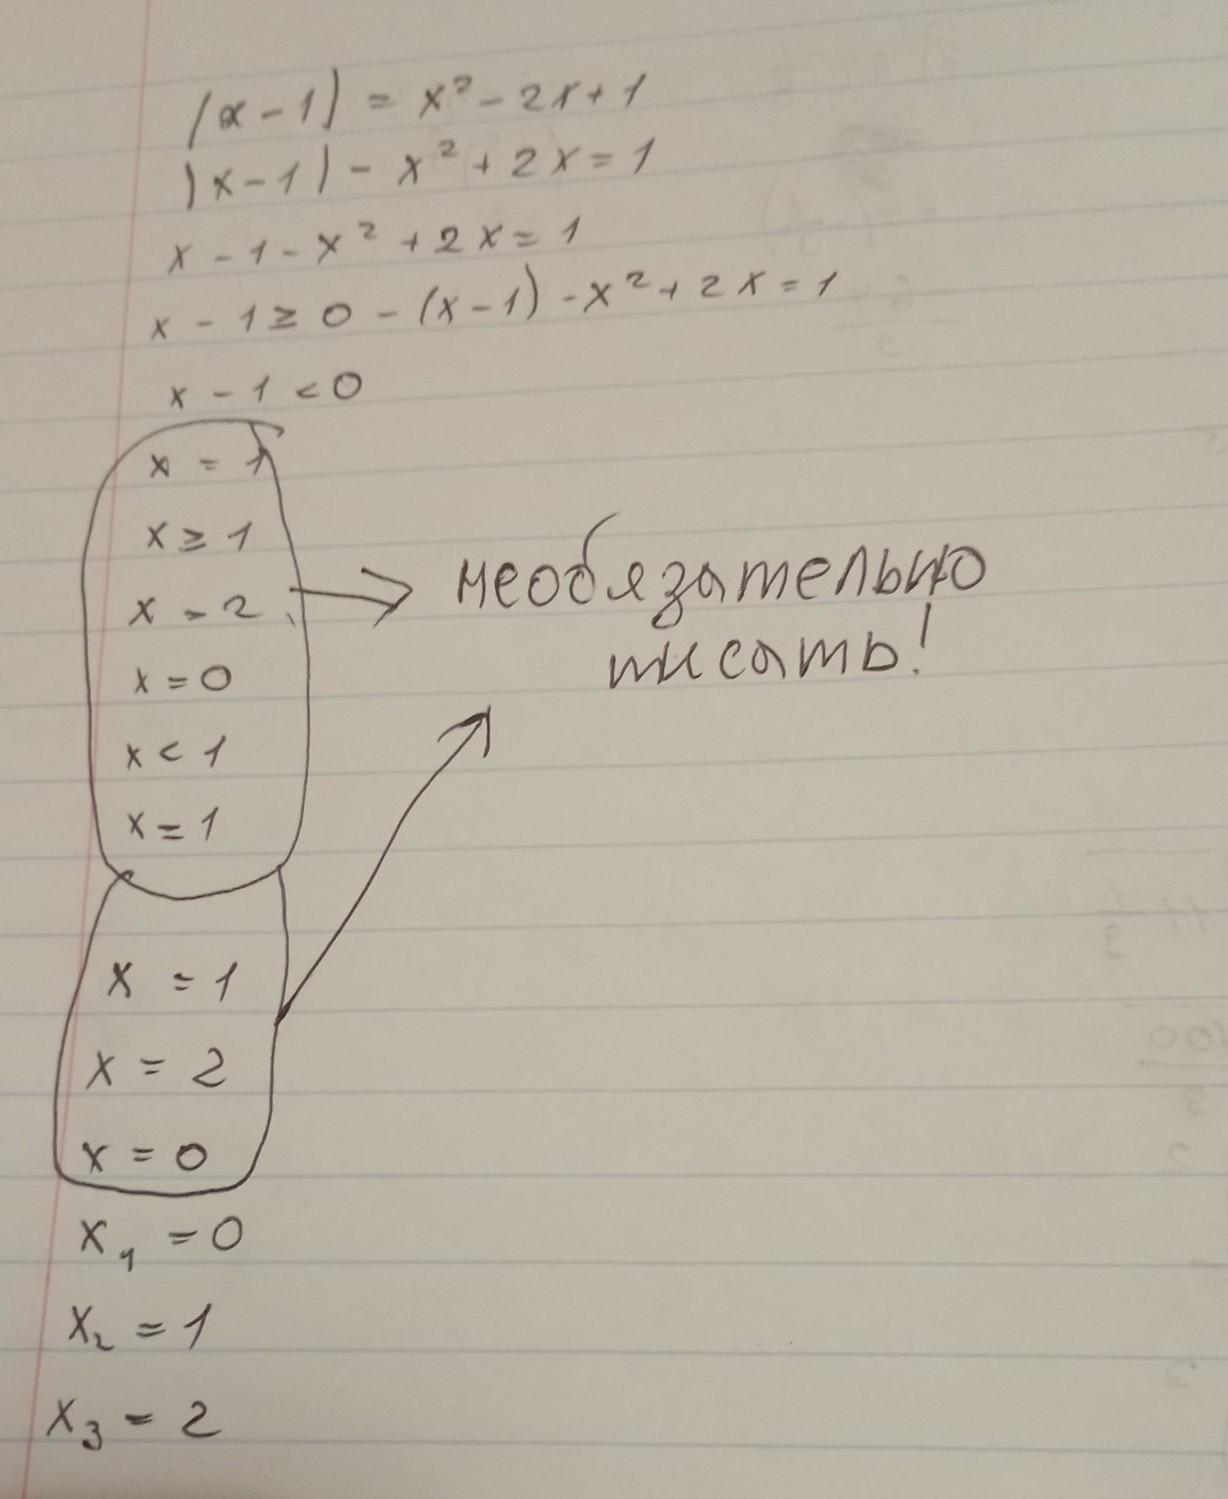 |x-1| = x² - 2x + 1
|x-1| - x² + 2x = 1
x - 1 - x² + 2x = 1
x - 1 ≥ 0 - (x-1) - x² + 2x = 1
x - 1 < 0
x = 1
x ≥ 1
x = 2
x = 0
x < 1
x = 1
необязательно
писать!
x = 1
x = 2
x = 0
x₁ = 0
x₂ = 1
x₃ = 2